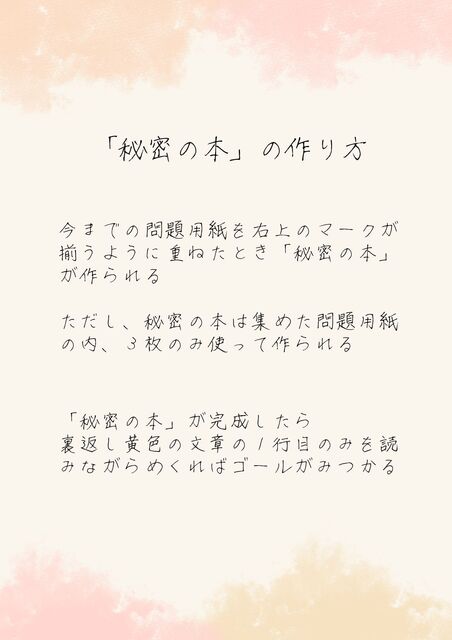 「秘密の本」の作り方
今までの問題用紙を右上のマークが
揃うように重ねたとき「秘密の本」
が作られる
ただし、秘密の本は集めた問題用紙
の内、３枚のみ使って作られる
「秘密の本」が完成したら
裏返し黄色の文章の１行目のみを読
みながらめくればゴールがみつかる